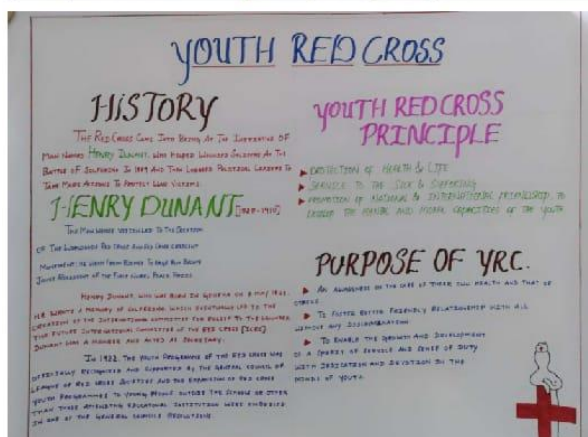 YOUTH RED CROSS
HISTORY
THE RED CROSS CAME INTO BEING AT THE INITIATIVE OF
MAN NAMED HENRY DUNANT, WHO HELPED WOUNDED SOLDIERS AT THE
BATTLE OF SOLFERINO IN AND THEN LOBBIED POLITICAL LEADERS TO
TAKE MORE ACTIONS TO PROTECT WAR VICTIMS.
HENRY DUNANT
THE MAN WHOSE VISION LED TO THE CREATION
OF THE WORLDWIDE RED CROSS AND RED CRESCENT
MOVEMENT; HE WENT FROM RICHES TO RAGS BUT BECAME
JOINT RECIPIENT OF THE FIRST NOBEL PEACE PRIZE.
HENRY DUNANT, WHO WAS BORN IN GENEVA ON 8 MAY
A MEMORY OF SOLFERINO WHICH EVENTUALLY LED TO THE
CREATION OF THE INTERNATIONAL COMMITTEE FOR RELIEF TO THE WOUNDED,
THE FUTURE INTERNATIONAL COMMITTEE OF THE RED CROSS [ICRC]
DUNANT WAS A MEMBER AND ACTED AS SECRETARY.
IN 1922, THE YOUTH PROGRAMME OF THE RED CROSS WAS
OFFICIALLY RECOGNISED AND SUPPORTED BY THE GENERAL COUNCIL OF
LEAGUE OF RED CROSS SOCIETIES AND THE EXPANSION OF RED CROSS
YOUTH PROGRAMMES TO YOUNG PEOPLE OUTSIDE THE SCHOOLS OR OTHER
THAN THOSE ATTENDING EDUCATIONAL INSTITUTION WERE EMBODIED
IN ONE OF THE GENERAL COUNCILS RESOLUTIONS.
YOUTH RED CROSS
PRINCIPLE
PROTECTION OF HEALTH & LIFE
SERVICE TO THE SICK & SUFFERING
PROMOTION OF NATIONAL & INTERNATIONAL FRIENDSHIP, TO
DEVELOP THE MENTAL AND MORAL CAPACITIES OF THE YOUTH
PURPOSE OF YRC.
AN AWARENESS ON THE CARE OF THEIR OWN HEALTH AND THAT OF
OTHERS.
TO FOSTER BETTER FRIENDLY RELATIONSHIP WITH ALL
WITHOUT ANY DISCRIMINATION.
TO ENABLE THE GROWTH AND DEVELOPMENT
OF A SPIRIT OF SERVICE AND SENSE OF DUTY
WITH DEDICATION AND DEVOTION IN THE
MINDS OF YOUTH.